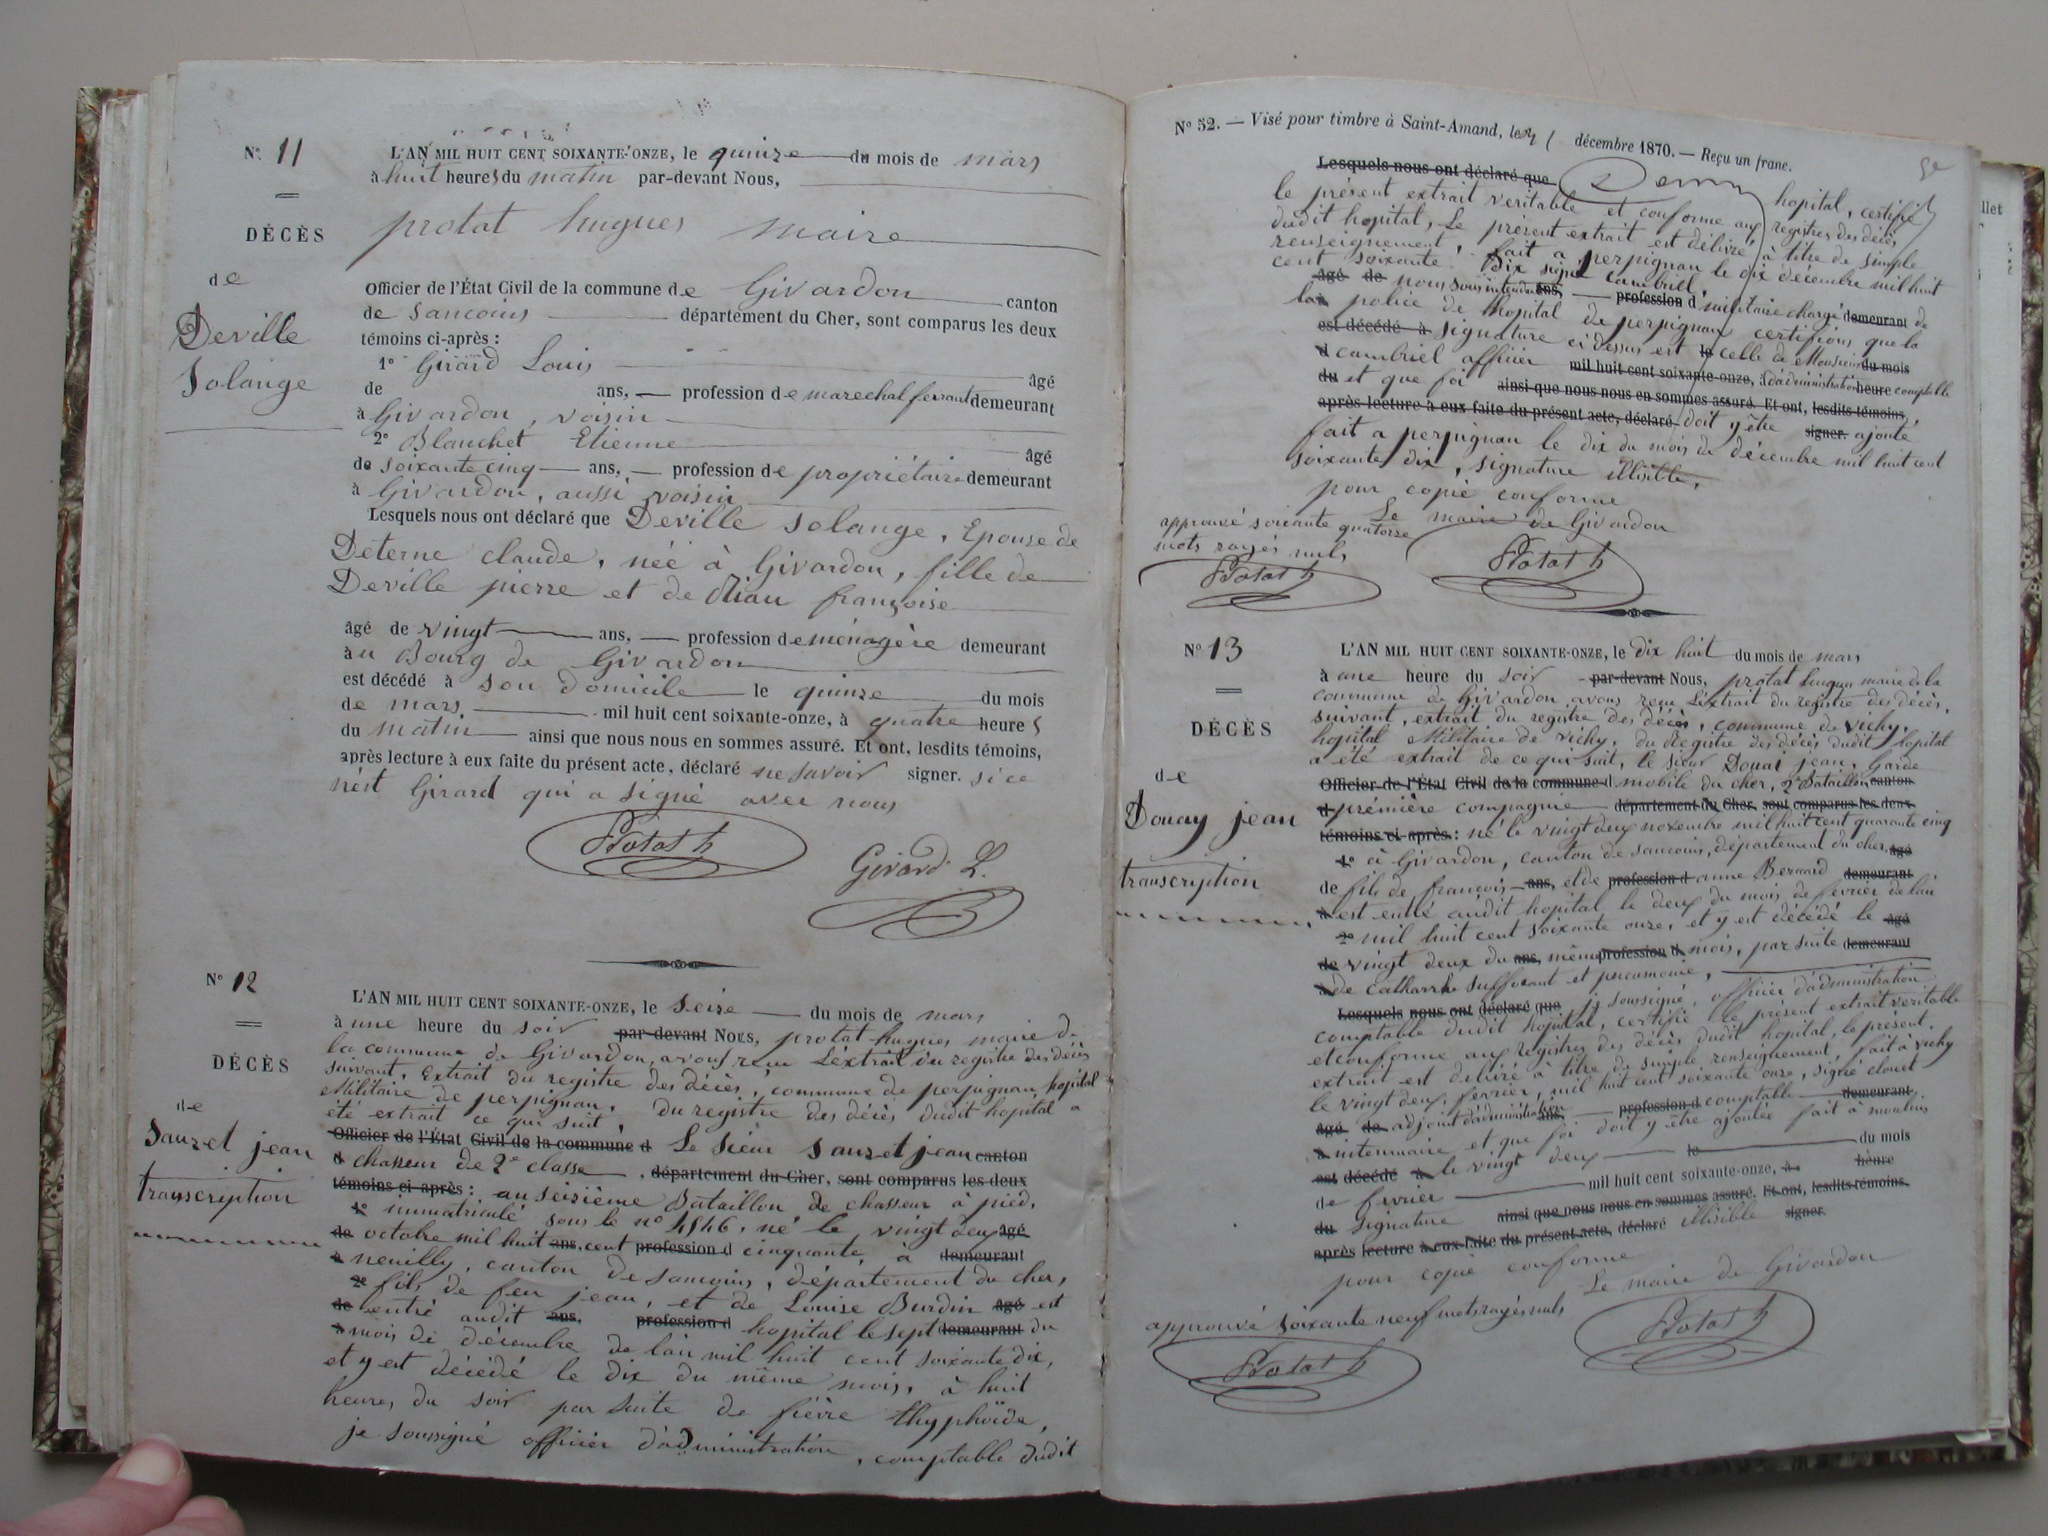 N° 11
DÉCÈS
de
Deville
Solange
L'AN MIL HUIT CENT SOIXANTE-ONZE, le quinze du mois de mars
à huit heures du matin par-devant Nous,
protat hugues maire
Officier de l'État Civil de la commune de Givardon canton
de Sancoins département du Cher, sont comparus les deux
témoins ci-après :
1° Girard Louis âgé
de ans, profession de marechal ferrant demeurant
à Givardon, voisin
2° Blanchet Etienne âgé
de soixante cinq ans, profession de propriétaire demeurant
à Givardon, aussi voisin
Lesquels nous ont déclaré que Deville Solange, Epouse de
Deterne claude, née à Givardon, fille de
Deville pierre et de françoise
âgé de vingt ans, profession de ménagère demeurant
au Bourg de Givardon
est décédé à son domicile le quinze du mois
de mars mil huit cent soixante-onze, à quatre heures
du matin ainsi que nous nous en sommes assuré. Et ont, lesdits témoins,
après lecture à eux faite du présent acte, déclaré ne savoir signer. si ce
n'est Girard qui a signé avec nous
Protat h
Girard L.
N° 12
DÉCÈS
de
Sauzet jean
transcription
L'AN MIL HUIT CENT SOIXANTE-ONZE, le seize du mois de mars
à une heure du soir par-devant Nous, protat hugues maire de
la commune de Givardon, avons reçu L'extrait du registre des décès
suivant, Extrait du registre des décès, commune de perpignan hopital
Militaire de perpignan, du registre des décès dudit hopital a
été extrait ce qui suit,
Officier de l'État Civil de la commune d Le sieur Sauzet jean canton
d chasseur de 2e classe, département du Cher, sont comparus les deux
témoins ci-après : au seizième Bataillon de chasseur à pied,
1° immatriculé sous le n° 4546, né le vingt deux âgé
de octobre mil huit ans, cent profession d cinquante, à demeurant
à neuilly, canton de sancoins, département du cher,
2° fils de feu jean, et de Louise Burdin âgé est
de entré audit ans, profession d hopital le sept demeurant du
à mois de décembre de l'an mil huit cent soixante dix,
et y est décédé le dix du même mois, à huit
heures du soir par suite de fièvre thyphoïde,
je soussigné officier d'administration, comptable dudit
N° 52. — Visé pour timbre à Saint-Amand, le décembre 1870. — Reçu un franc.
Lesquels nous ont déclaré que hopital, certifie
le présent extrait veritable et conforme aux registres des décès
dudit hopital, Le présent extrait est délivré à titre de simple
renseignement, fait a perpignan le dix décembre mil huit
cent soixante dix signé Cambriel,
âgé de nous sous intendant ans, profession d militaire chargé demeurant de
la police de l'hopital de perpignan certifions que la
est décédé à signature ci dessus est le celle de Monsieur du mois
d cambriel officier mil huit cent soixante-onze, à d'administration heure comptable
du et que foi ainsi que nous nous en sommes assuré. Et ont, lesdits témoins,
après lecture à eux faite du présent acte, déclaré doit y être signer. ajouté
fait a perpignan le dix du mois de décembre mil huit cent
soixante dix, signature illisible,
pour copie conforme
Le maire de Givardon
approuvé soixante quatorze
mots rayés nuls
Protat h
Protat h
N° 13
DÉCÈS
de
Douay jean
transcription
L'AN MIL HUIT CENT SOIXANTE-ONZE, le dix huit du mois de mars
à une heure du soir par-devant Nous, protat hugues maire de la
commune de Givardon avons reçu L'extrait du registre des décès,
suivant, extrait du registre des décès, commune de Vichy,
hopital Militaire de Vichy, du Registre des décès dudit hopital
a été extrait de ce qui suit, le sieur Douai jean, Garde
Officier de l'État Civil de la commune d mobile du cher, 2e Bataillon canton
d première compagnie département du Cher, sont comparus les deux
témoins ci-après : né le vingt deux novembre mil huit cent quarante cinq
1° à Givardon, canton de sancoins, département du cher, âgé
de fils de françois ans, et de profession d anne Bernard demeurant
à est entré audit hopital le deux du mois de fevrier de l'an
2° mil huit cent soixante onze, et y est décédé le âgé
de vingt deux du ans, même profession d mois, par suite demeurant
à de catharrhe suffocant et pneumonie,
Lesquels nous ont déclaré que je soussigné, officier d'administration
comptable dudit hopital, certifie le présent extrait veritable
et conforme aux registres des décès dudit hopital, le présent,
extrait est delivré à titre de simple renseignement, fait à vichy
le vingt deux, fevrier, mil huit cent soixante onze, signé
âgé de adjoint d'administration ans, profession d comptable demeurant
à intérimaire et que foi doit y être ajoutée fait à moulins
est décédé à le vingt deux le du mois
de fevrier mil huit cent soixante-onze, à heure
du signature ainsi que nous nous en sommes assuré. Et ont, lesdits témoins,
après lecture à eux faite du présent acte, déclaré illisible signer.
pour copie conforme
Le maire de Givardon
approuvé soixante neuf mots rayés nuls
Protat h
Protat h